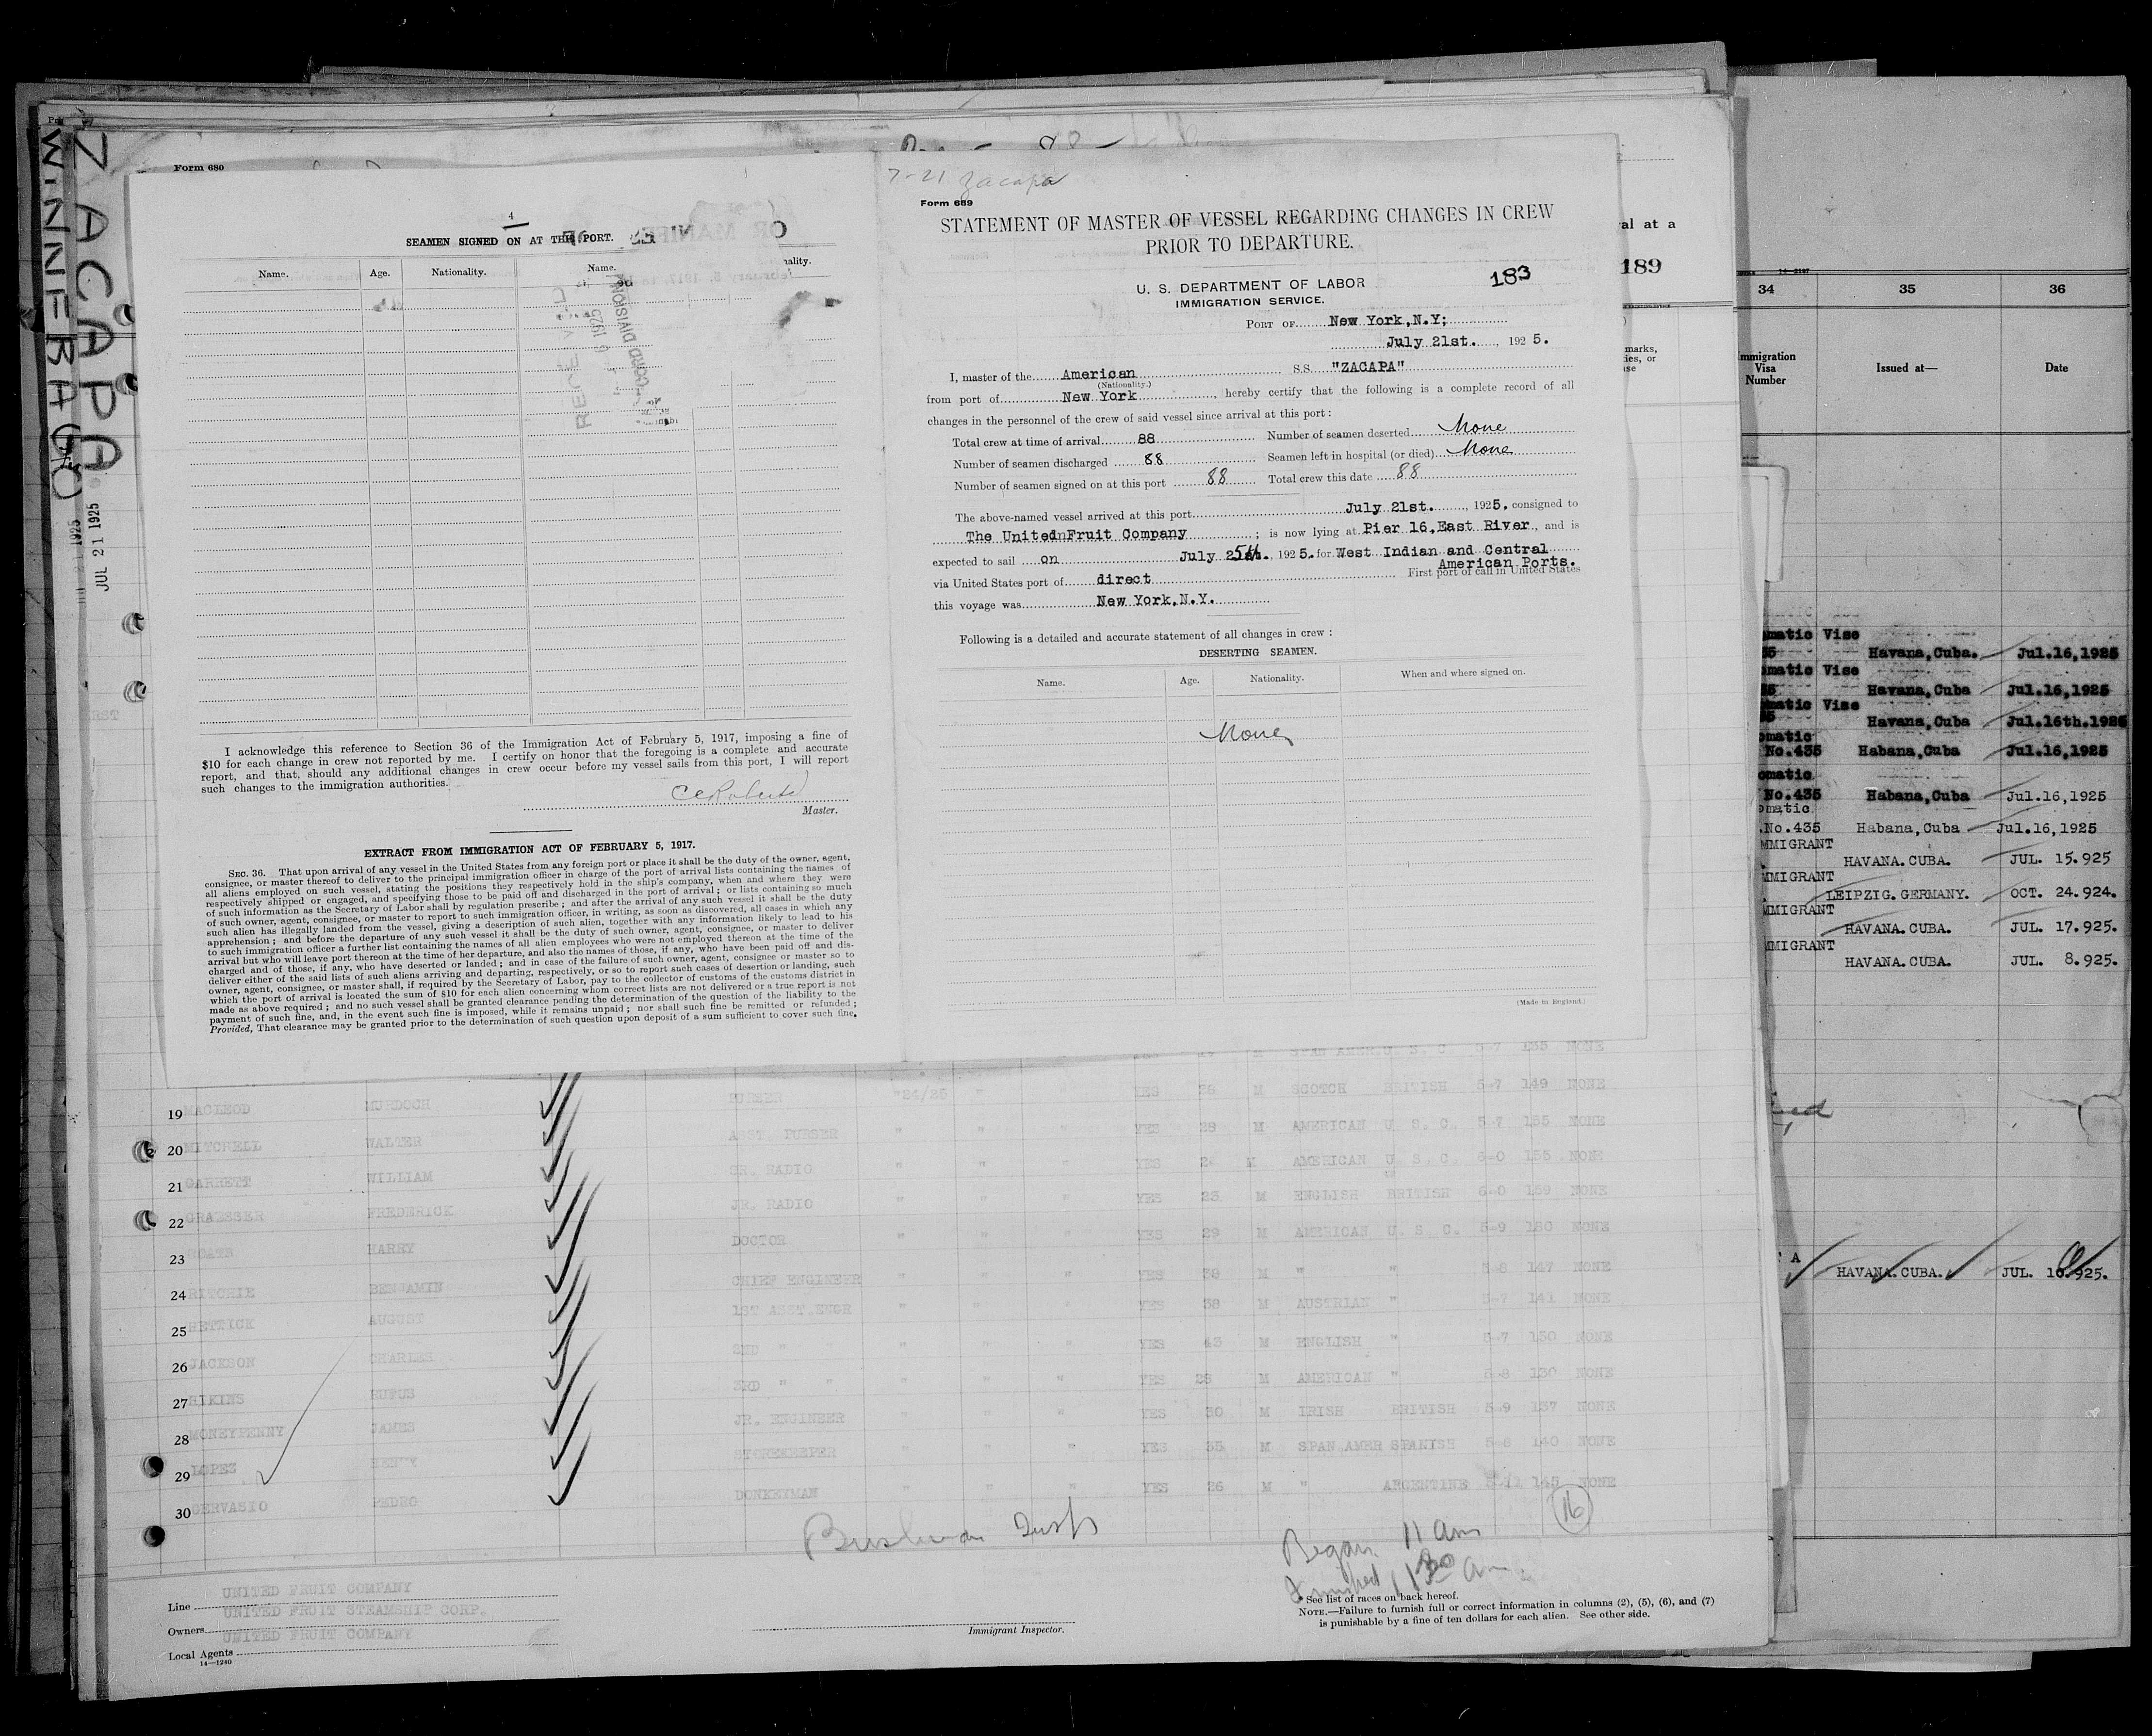 ZACAPA
WINNFRBAGO
JUL 21 1925
Form 680
4
SEAMEN SIGNED ON AT THIS PORT.
Name. Age. Nationality. Name.
ality.
I acknowledge this reference to Section 36 of the Immigration Act of February 5, 1917, imposing a fine of
$10 for each change in crew not reported by me. I certify on honor that the foregoing is a complete and accurate
report, and that, should any additional changes in crew occur before my vessel sails from this port, I will report
such changes to the immigration authorities.
CCRoberts
Master.
EXTRACT FROM IMMIGRATION ACT OF FEBRUARY 5, 1917.
SEC. 36. That upon arrival of any vessel in the United States from any foreign port or place it shall be the duty of the owner, agent,
consignee, or master thereof to deliver to the principal immigration officer in charge of the port of arrival lists containing the names of
all aliens employed on such vessel, stating the positions they respectively hold in the ship's company, when and where they were
respectively shipped or engaged, and specifying those to be paid off and discharged in the port of arrival; or lists containing so much
of such information as the Secretary of Labor shall by regulation prescribe; and after the arrival of any such vessel it shall be the duty
of such owner, agent, consignee, or master to report to such immigration officer, in writing, as soon as discovered, all cases in which any
such alien has illegally landed from the vessel, giving a description of such alien, together with any information likely to lead to his
apprehension; and before the departure of any such vessel it shall be the duty of such owner, agent, consignee, or master to deliver
to such immigration officer a further list containing the names of all alien employees who were not employed thereon at the time of the
arrival but who will leave port thereon at the time of her departure, and also the names of those, if any, who have been paid off and dis-
charged and of those, if any, who have deserted or landed; and in case of the failure of such owner, agent, consignee or master so to
deliver either of the said lists of such aliens arriving and departing, respectively, or so to report such cases of desertion or landing, such
owner, agent, consignee, or master shall, if required by the Secretary of Labor, pay to the collector of customs of the customs district in
which the port of arrival is located the sum of $10 for each alien concerning whom correct lists are not delivered or a true report is not
made as above required; and no such vessel shall be granted clearance pending the determination of the question of the liability to the
payment of such fine, and, in the event such fine is imposed, while it remains unpaid; nor shall such fine be remitted or refunded;
Provided, That clearance may be granted prior to the determination of such question upon deposit of a sum sufficient to cover such fine.
7-21 Zacapa
Form 689
STATEMENT OF MASTER OF VESSEL REGARDING CHANGES IN CREW
PRIOR TO DEPARTURE.
U. S. DEPARTMENT OF LABOR
IMMIGRATION SERVICE.
183
PORT OF New York,N.Y;
July 21st. , 192 5.
I, master of the American S.S. "ZACAPA"
(Nationality.)
from port of New York , hereby certify that the following is a complete record of all
changes in the personnel of the crew of said vessel since arrival at this port:
Total crew at time of arrival 88 Number of seamen deserted None
Number of seamen discharged 88 Seamen left in hospital (or died) None
Number of seamen signed on at this port 88 Total crew this date 88
The above-named vessel arrived at this port July 21st. , 1925. consigned to
The United Fruit Company ; is now lying at Pier 16,East River , and is
expected to sail on July 25th. , 192 5. for West Indian and Central
American Ports.
via United States port of direct First port of call in United States
this voyage was New York,N.Y.
Following is a detailed and accurate statement of all changes in crew:
DESERTING SEAMEN.
Name. Age. Nationality. When and where signed on.
None
(Made in England.)
al at a
189
marks,
ies, or
se
34 35 36
mmigration
Visa
Number
Issued at— Date
matic Vise
Havana,Cuba. Jul.16,1925
matic Vise
Havana,Cuba Jul.16,1925
matic Vise
Havana,Cuba Jul.16th.1925
omatic
No.435 Habana,Cuba Jul.16,1925
omatic
No.435 Habana,Cuba Jul.16,1925
omatic
.No.435 Habana,Cuba Jul.16,1925
MMIGRANT
HAVANA.CUBA. JUL. 15.925
MMIGRANT
LEIPZIG.GERMANY. OCT. 24.924.
MMIGRANT
HAVANA.CUBA. JUL. 17.925.
MMIGRANT
HAVANA.CUBA. JUL. 8.925.
A HAVANA.CUBA. JUL. 10.925.
19 MACLEOD MURDOCH PURSER "24/25 " " YES 36 M SCOTCH BRITISH 5-7 149 NONE
20 MITCHELL WALTER ASST. PURSER " " " YES 28 M AMERICAN U. S. C. 5-7 155 NONE
21 GARRETT WILLIAM SR. RADIO " " " YES M AMERICAN U. S. C. 6-0 155 NONE
22 GRAESSER FREDERICK JR. RADIO " " " YES 23 M ENGLISH BRITISH 6-0 159 NONE
23 HARRY DOCTOR " " " YES 29 M AMERICAN U. S. C. 5-9 180 NONE
24 RITCHIE BENJAMIN CHIEF ENGINEER " " " YES 38 M " " 5-8 147 NONE
25 BETTICK AUGUST 1ST ASST.ENGR " " " YES 38 M AUSTRIAN " 5-7 141 NONE
26 JACKSON CHARLES 2ND " " " " " YES 43 M ENGLISH " 5-7 150 NONE
27 RUFUS 3RD " " " " " YES 28 M AMERICAN " 5-8 130 NONE
28 MONEYPENNY JAMES JR. ENGINEER " " " YES 30 M IRISH BRITISH 5-9 137 NONE
29 LOPEZ HENRY STOREKEEPER " " " YES 35 M SPAN AMER SPANISH 5-8 140 NONE
30 GERVASIO PEDRO DONKEYMAN " " " YES 26 M " ARGENTINE 145 NONE
16
Began 11 am
Finished 11 30 am
Line UNITED FRUIT COMPANY
Owners UNITED FRUIT STEAMSHIP CORP.
Local Agents UNITED FRUIT COMPANY
14—1240
Immigrant Inspector.
* See list of races on back hereof.
NOTE.—Failure to furnish full or correct information in columns (2), (5), (6), and (7)
is punishable by a fine of ten dollars for each alien. See other side.